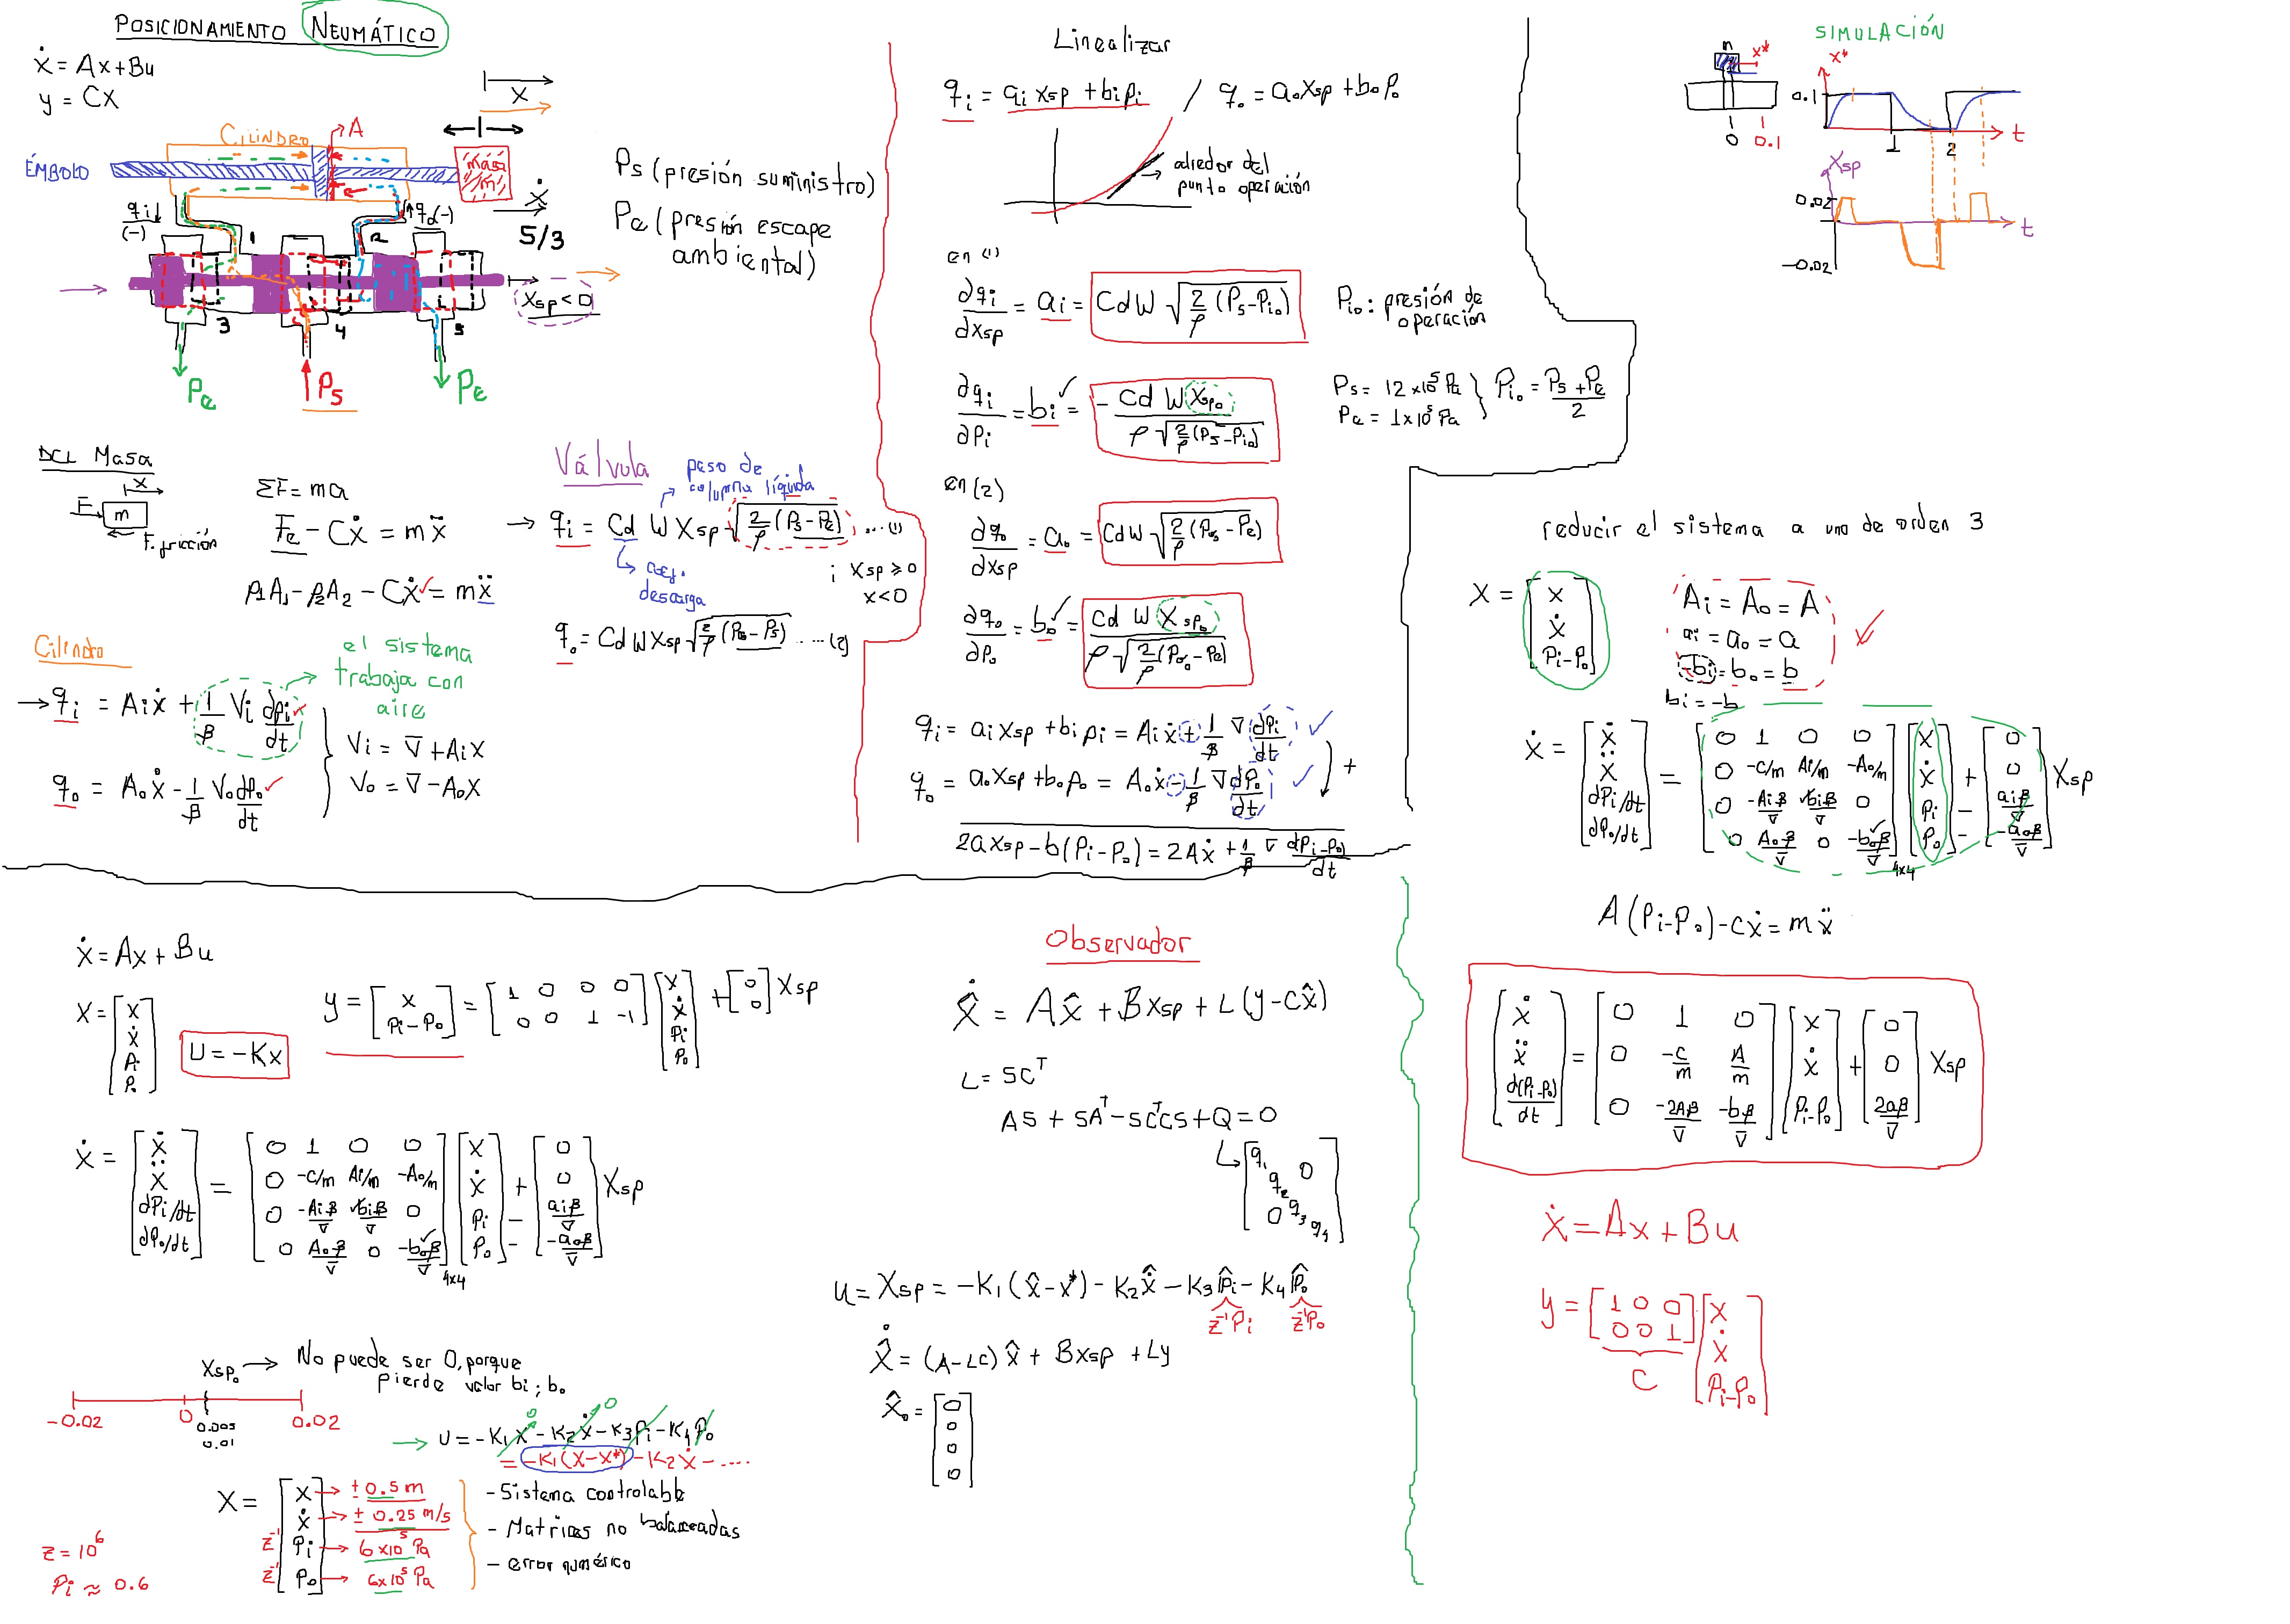 POSICIONAMIENTO NEUMÁTICO
ẋ = Ax + Bu
y = Cx
x
CILINDRO
A
ÉMBOLO
masa
m
ẋ
qi (-)
qo (-)
5/3
1
2
Xsp < 0
3
4
5
Pe
Ps
Pe
Ps (presión suministro)
Pe (presión escape
ambiental)
DCL Masa
x
F
m
F. fricción
ΣF = ma
Fe - Cẋ = mẍ
p1A1 - p2A2 - Cẋ = mẍ
Válvula
paso de
columna líquida
qi = Cd W Xsp √(2/ρ (Ps - Pe)) ....(1)
coef.
descarga
¡ Xsp ≥ 0
x < 0
qo = Cd W Xsp √(2/ρ (Po - Ps)) ....(2)
Cilindro
el sistema
trabaja con
aire
qi = Ai ẋ + 1/β Vi dpi/dt
qo = Ao ẋ - 1/β Vo dpo/dt
Vi = V̄ + Ai x
Vo = V̄ - Ao x
Linealizar
qi = ai xsp + bi pi / qo = ao xsp + bo Po
alredor del
punto operación
en (1)
∂qi/∂xsp = ai = Cd W √(2/ρ (Ps - Pio))
Pio : presión de
operación
∂qi/∂Pi = bi = - Cd W Xspo / ρ √(2/ρ (Ps - Pio))
Ps = 12 x10⁵ Pa
Pe = 1x10⁵ Pa
Pio = Ps + Pe / 2
en (2)
∂qo/∂xsp = ao = Cd W √(2/ρ (Poo - Pe))
∂qo/∂Po = bo = Cd W Xspo / ρ √(2/ρ (Poo - Pe))
qi = ai xsp + bi pi = Ai ẋ + 1/β V̄ dPi/dt
qo = ao xsp + bo po = Ao ẋ - 1/β V̄ dPo/dt
+
2a xsp - b (Pi - Po) = 2A ẋ + 1/β V̄ dPi-Po/dt
SIMULACIÓN
m
x*
0
0.1
x*
0.1
1
2
t
Xsp
0.02
-0.02
t
reducir el sistema a uno de orden 3
X = [x ẋ Pi-Po]
Ai = Ao = A
ai = ao = a
-bi = bo = b
bi = -b
ẋ = [ẋ ẍ dPi/dt dPo/dt] =
[0 1 0 0
0 -c/m Ai/m -Ao/m
0 -Aiβ/V̄ biβ/V̄ 0
0 Aoβ/V̄ 0 -boβ/V̄] 4x4
[x ẋ Pi Po] + [0 0 aiβ/V̄ -aoβ/V̄] Xsp
A (Pi - Po) - cẋ = mẍ
[ẋ ẍ d(Pi-Po)/dt] =
[0 1 0
0 -c/m A/m
0 -2Aβ/V̄ -bβ/V̄]
[x ẋ Pi-Po] + [0 0 2aβ/V̄] Xsp
ẋ = Ax + Bu
y = [1 0 0
0 0 1] [x ẋ Pi-Po]
C
ẋ = Ax + Bu
X = [x ẋ Pi Po]
U = -Kx
y = [x Pi-Po] = [1 0 0 0
0 0 1 -1] [x ẋ Pi Po] + [0 0] Xsp
ẋ = [ẋ ẍ dPi/dt dPo/dt] =
[0 1 0 0
0 -c/m Ai/m -Ao/m
0 -Aiβ/V̄ biβ/V̄ 0
0 Aoβ/V̄ 0 -boβ/V̄] 4x4
[x ẋ Pi Po] + [0 0 aiβ/V̄ -aoβ/V̄] Xsp
Xspo → No puede ser 0, porque
pierde valor bi ; bo
-0.02
0
0.005
0.01
0.02
U = -K1x - K2ẋ - K3Pi - K4Po
0
0
= -K1(x-x*) - K2ẋ - ....
X =
x → ± 0.5 m
ẋ → ± 0.25 m/s
z⁻¹ Pi → 6 x10⁵ Pa
z⁻¹ Po → 6x10⁵ Pa
- Sistema controlable
- Matrices no balanceadas
- error numérico
z = 10⁶
Pi ≈ 0.6
Observador
x̂̇ = Ax̂ + Bxsp + L (y - Cx̂)
L = SCᵀ
AS + SAᵀ - SCᵀCS + Q = 0
[q1 0
q2
0 q3
q4]
U = Xsp = -K1 (x̂ - x*) - K2 x̂̇ - K3 P̂i - K4 P̂o
z⁻¹Pi
z⁻¹Po
x̂̇ = (A-LC) x̂ + Bxsp + Ly
x̂o = [0 0 0 0]